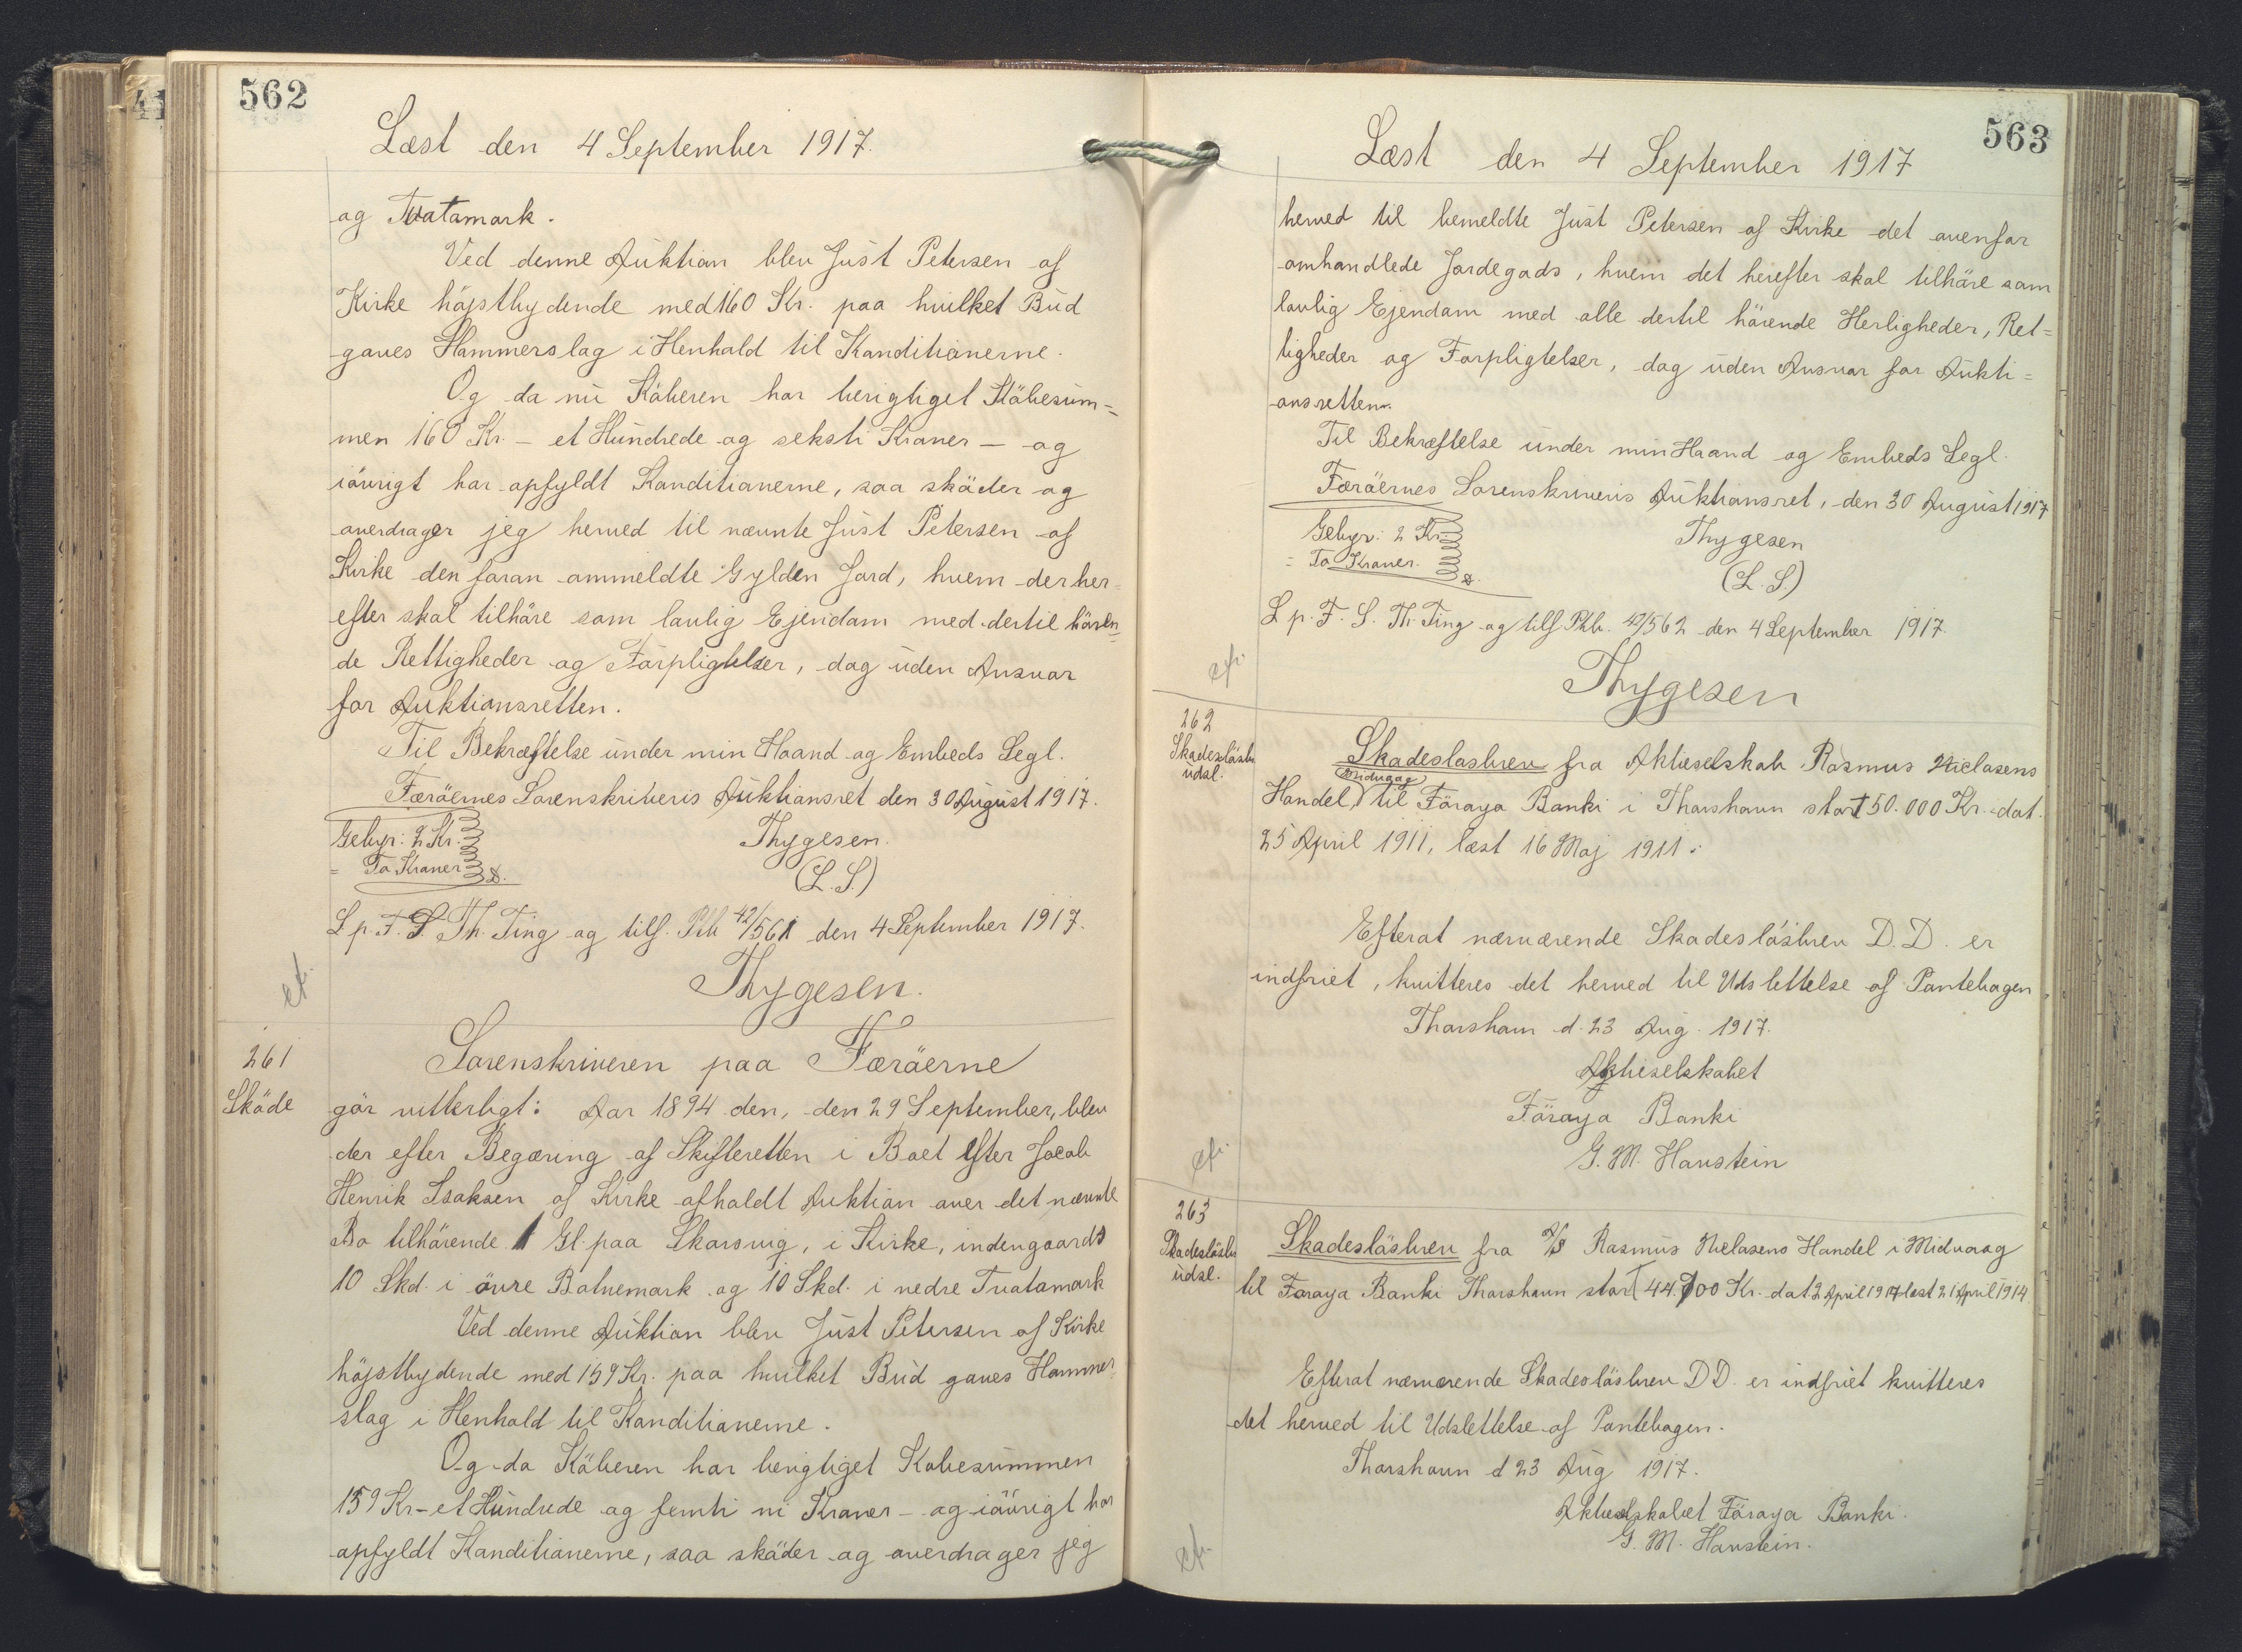 562
Læst den 4 September 1917.
og Tvatamark.
Ved denne Auktion blev Just Petersen af
Kirke højstbydende med 160 Kr. paa hvilket Bud
gaves Hammerslag i Henhold til Konditionerne.
Og da nu Köberen har berigtiget Köbesum=
men 160 Kr. - et Hundrede og seksti Kroner - og
iövrigt har opfyldt Konditionerne, saa sköder og
overdrager jeg herved til nævnte Just Petersen af
Kirke den foran ommeldte Gylden Jord, hvem der her=
efter skal tilhöre som lovlig Ejendom med dertil hören=
de Rettigheder og Forpligtelser, dog uden Ansvar
for Auktionsretten.
Til Bekræftelse under min Haand og Embeds Segl.
Færöernes Sorenskriveris Auktionsret den 30 August 1917.
Gebyr: 2 Kr. Thygesen.
= To Kroner (L.S.)
L p. F. S. Th. Ting og tilf. Ptb 42/561 den 4 September 1917.
Thygesen.
261
Sköde
Sorenskriveren paa Færöerne
gör vitterligt: Aar 1894 den, den 29 September, blev
der efter Begæring af Skifteretten i Boet efter Jacob
Henrik Isaksen af Kirke afholdt Auktion over det nævnte
Bo tilhörende 1 Gl. paa Skarsvig, i Kirke, indengaards
10 Skd. i övre Botnemark og 10 Skd. i nedre Tvatamark
Ved denne Auktion blev Just Petersen af Kirke
höjstbydende med 159 Kr. paa hvilket Bud gaves Hammer=
slag i Henhold til Konditionerne.
Og da Köberen har berigtiget Kobesummen
159 Kr - et Hundrede og femti ni Kroner - og iövrigt har
opfyldt Konditionerne, saa sköder og overdrager jeg
563
Læst den 4 September 1917
herved til bemeldte Just Petersen af Kirke det ovenfor
omhandlede Jordegods, hvem det herefter skal tilhöre som
lovlig Ejendom med alle dertil hörende Herligheder, Ret=
tigheder og Forpligtelser, dog uden Ansvar for Aukti=
onsretten.
Til Bekræftelse under min Haand og Embeds Segl.
Færöernes Sorenskriveris Auktionsret, den 30 August 1917
Gebyr: 2 Kr. Thygesen
= To Kroner. (L.S.)
L p. F. S. Th. Ting og tilf Ptb. 42/562 den 4 September 1917.
Thygesen
262
Skadeslösbr
udsl.
Skadeslosbrev fra Aktieselskab Rasmus Niclasens
Midvaag
Handel, til Föroya Banki i Thorshavn stort 50.000 Kr. dat.
25 April 1911, læst 16 Maj 1911.
Efterat nærværende Skadeslösbrev D.D. er
indfriet, kvitteres det herved til Udslettelse af Pantebogen
Thorshavn d. 23 Aug. 1917.
Aktieselskabet
Föroya Banki
G. M. Hanstein
263
Skadeslösbr
udsl.
Skadeslösbrev fra A/S Rasmus Niclasens Handel i Midvaag
til Föroya Banki Thorshavn stort 44.700 Kr. dat. 2 April 1914 læst 21 April 1914
Efterat nærværende Skadeslösbrev D D. er indfriet kvitteres
det herved til Udslettelse af Pantebogen.
Thorshavn d 23 Aug 1917.
Aktieselskabet Föroya Banki.
G. M. Hanstein.